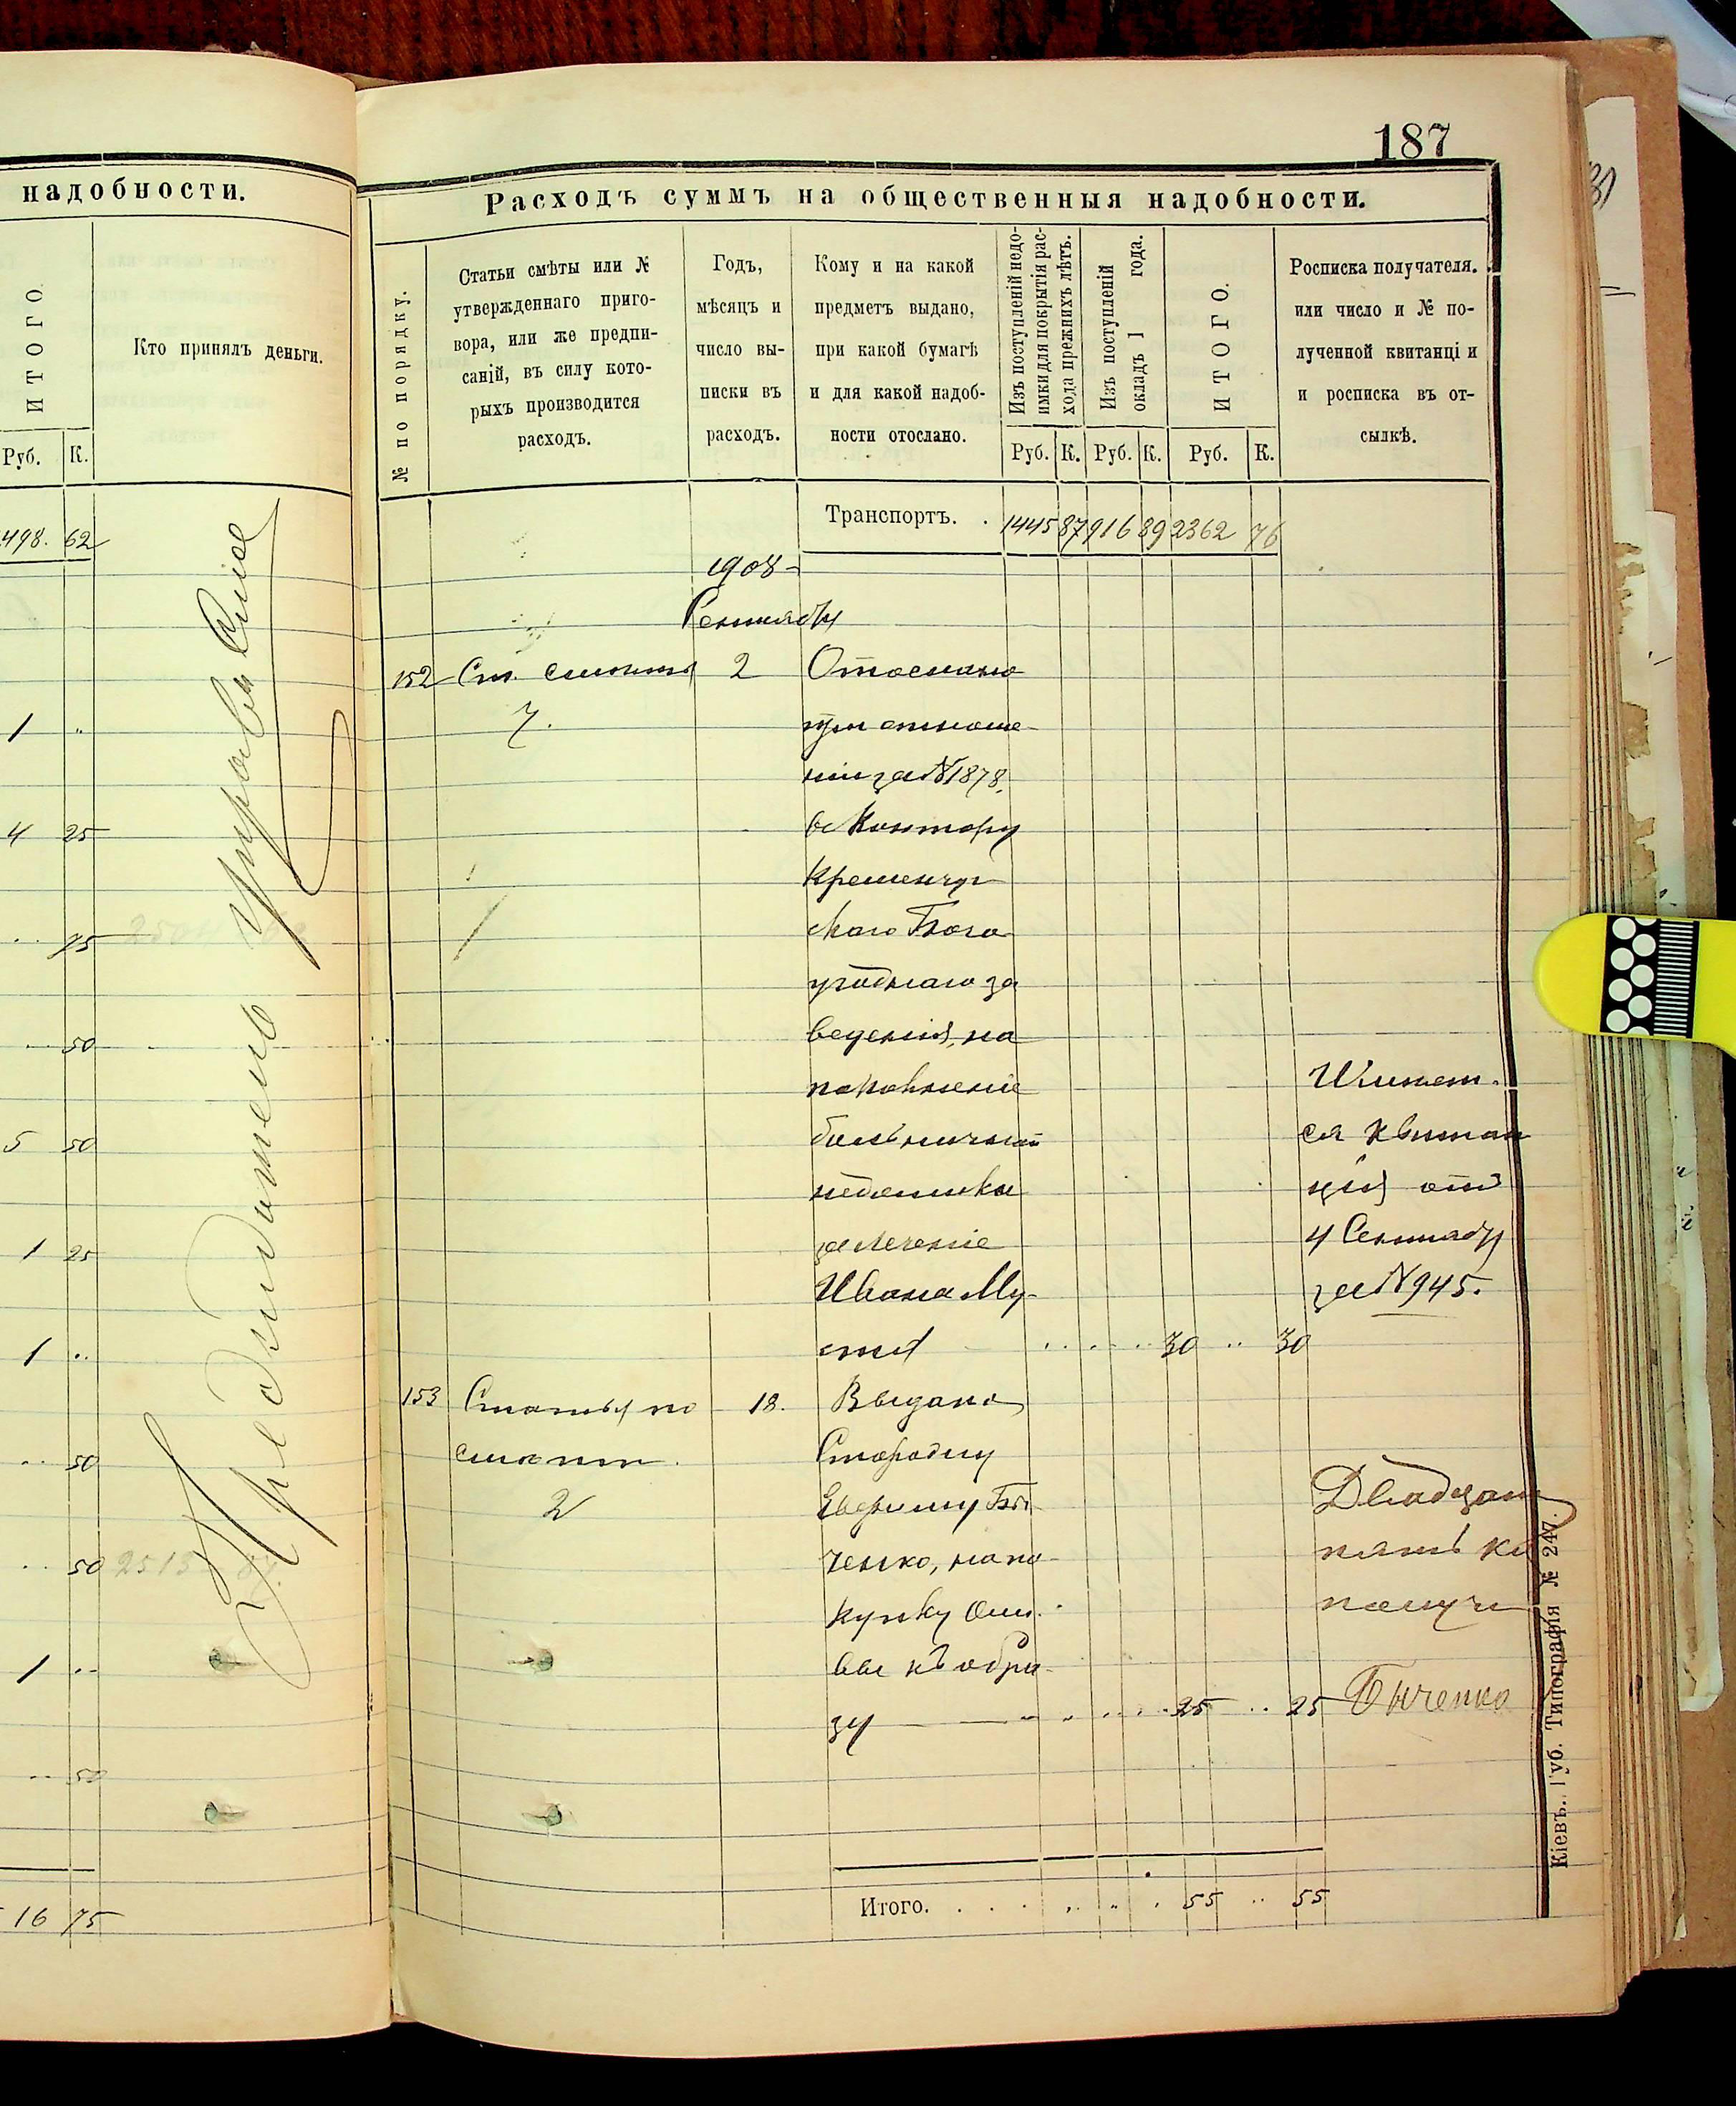 надобности.
ИТОГО.
Кто принялъ деньги.
Руб. К.
498. 62
1 ..
4 25
.. 75
.. 50
5 50
1 25
1 ..
.. 50
.. 50
1 ..
.. 50
16 75
187
Расходъ суммъ на общественныя надобности.
№ по порядку.
Статьи смѣты или №
утвержденнаго приго-
вора, или же предпи-
саній, въ силу кото-
рыхъ производится
расходъ.
Годъ,
мѣсяцъ и
число вы-
писки въ
расходъ.
Кому и на какой
предметъ выдано,
при какой бумагѣ
и для какой надоб-
ности отослано.
Изъ поступленій недо-
имки для покрытія рас-
хода прежнихъ лѣтъ.
Изъ поступленій
окладъ 1 года.
ИТОГО.
Росписка получателя.
или число и № по-
лученной квитанці и
и росписка въ от-
сылкѣ.
Руб. К. Руб. К. Руб. К.
Транспортъ. . 1445 87 916 89 2362 76
1908
Сентября
152 Ст. смѣты 2 Отослано
7. при отноше-
ніи за № 1878.
въ Контору
Кременчуг
скаго Бого
угоднаго за
веденія, на
пополненіе
больничной
недоимки
за леченіе
Ивана Му-
.. 30 .. 30
Имѣет-
ся квитан
ція отъ
4 Сентября
за № 945.
153 Статья по 18. Выдано
смѣтѣ
2
ченко, на по-
купку
зу 25 .. 25
Двадцать
пять ко
получи
Быченко
Итого. . . . 55 .. 55
Кіевъ. Губ. Типографія № 247.